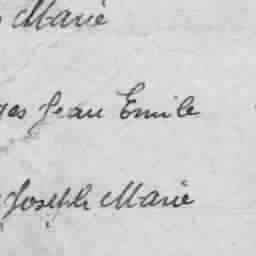 Marie
Jean Emile
Joseph Marie